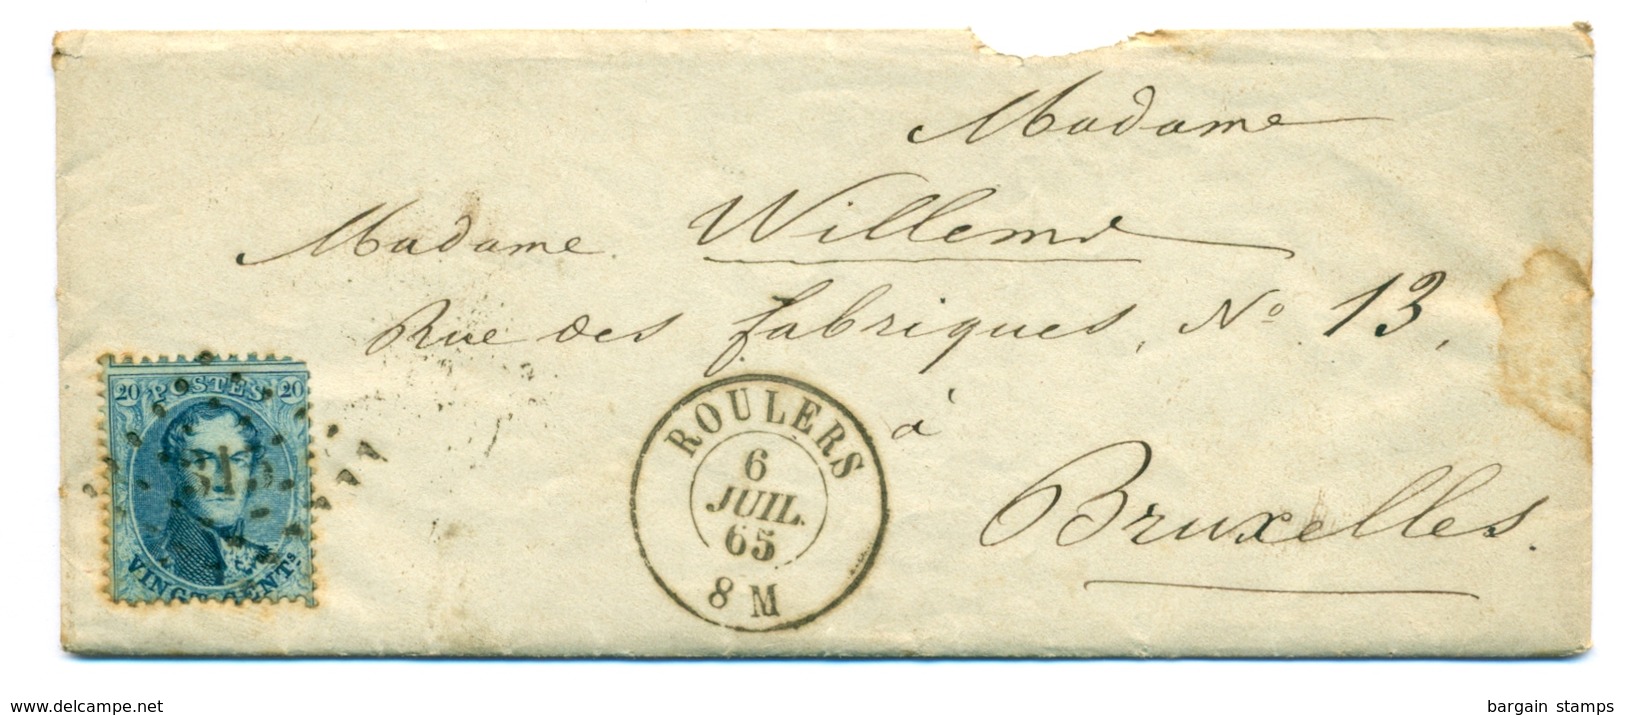 Madame
Madame Willems
Rue des fabriques, No 13,
à
Bruxelles.
20 POSTES 20
VINGT CENTS
ROULERS
6
JUIL.
65
8 M
www.delcampe.net
bargain stamps